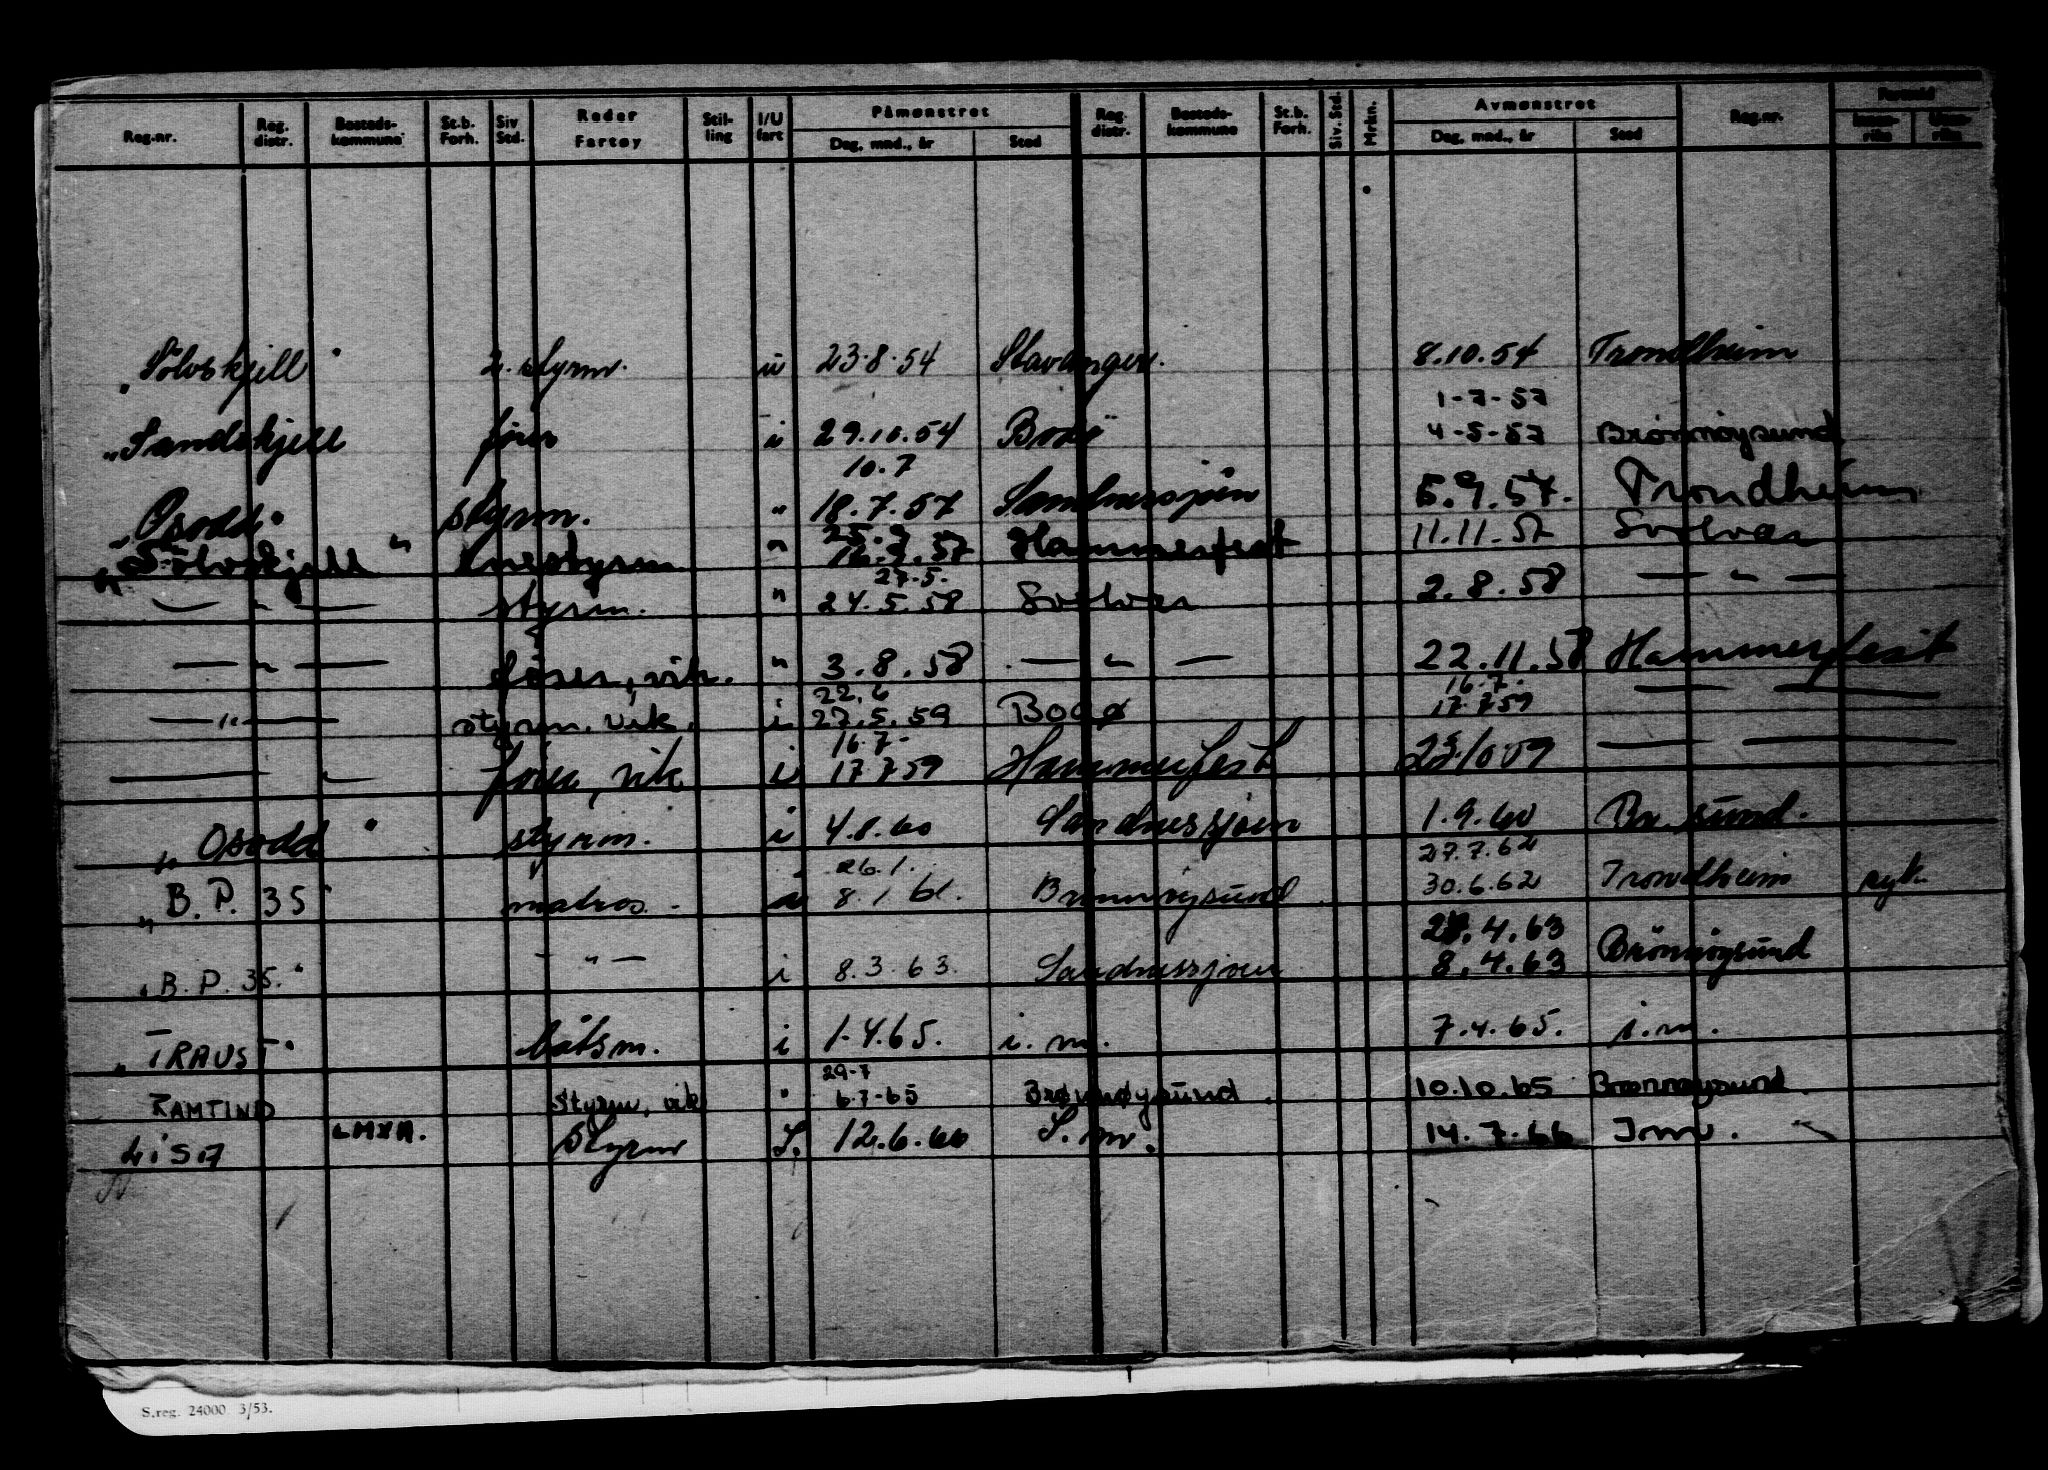 Reg.nr. Reg. distr. Bosteds- kommune St.b. Forh. Siv Std. Reder Fartøy Stil- ling I/U fart Påmønstret Dag, mnd., år Sted Reg. distr. Bosteds- kommune St.b. Forh. Siv. Std. Mrkn. Avmønstret Dag, mnd., år Sted Reg.nr.
"Sölvskjell" 2. styrm. u 23.8.54 Stavanger. 8.10.54 Trondheim
1-7-57
"Sandskjell fører i 29.10.54 Bodö 4-5-57 Brönnöysund
10.7
"Osodd" styrm. " 18.7.57 Sandnessjøen 5.9.57. Trondheim
25.9
"Sölvskjell" enestyrm " 16.9.57 Hammerfest 11.11.57 Svolvær
27.5.
— " — styrm. " 24.5.58 Svolvær 2.8.58 — " —
— " — förer, vik. " 3.8.58 — " — 22.11.58 Hammerfest
22.6 16.7.
— " — styrm. vik. i 27.5.59 Bodø 17.7.59 — —
16.7.
— " fører, vik i 17.7.59 Hammerfest — —
"Osodd" styrm. i 4.8.60 Sandnessjøen 1.9.60 Br. sund.
26.1. 27.7.62
"B.P. 35" matros. i 8.1.61. Brönnöysund 30.6.62 Trondheim syk.
4.63
"B.P. 35." — " — i 8.3.63. Sandnessjøen 8.4.63 Brönnöysund
"TRAUST" båtsm. i 1.4.65. i.m. 7.4.65. i.m.
29-7
RAMTIND styrm, vik " 6-7-65 Brønnøysund. 10.10.65 Brønnøysund.
LISA LMXA. Styrm I. 12.6.66 I.m. 14.7.66 Im.
S.reg. 24000 3/53.